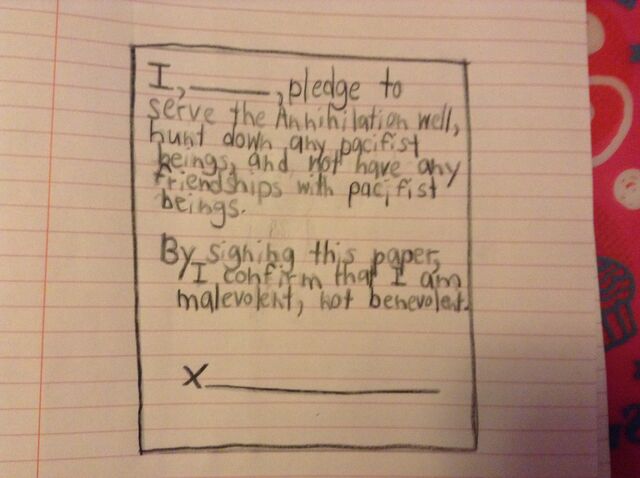 I, ________, pledge to
serve the Annihilation well,
hunt down any pacifist
beings, and not have any
friendships with pacifist
beings.
By signing this paper,
I confirm that I am
malevolent, not benevolent.
X____________________